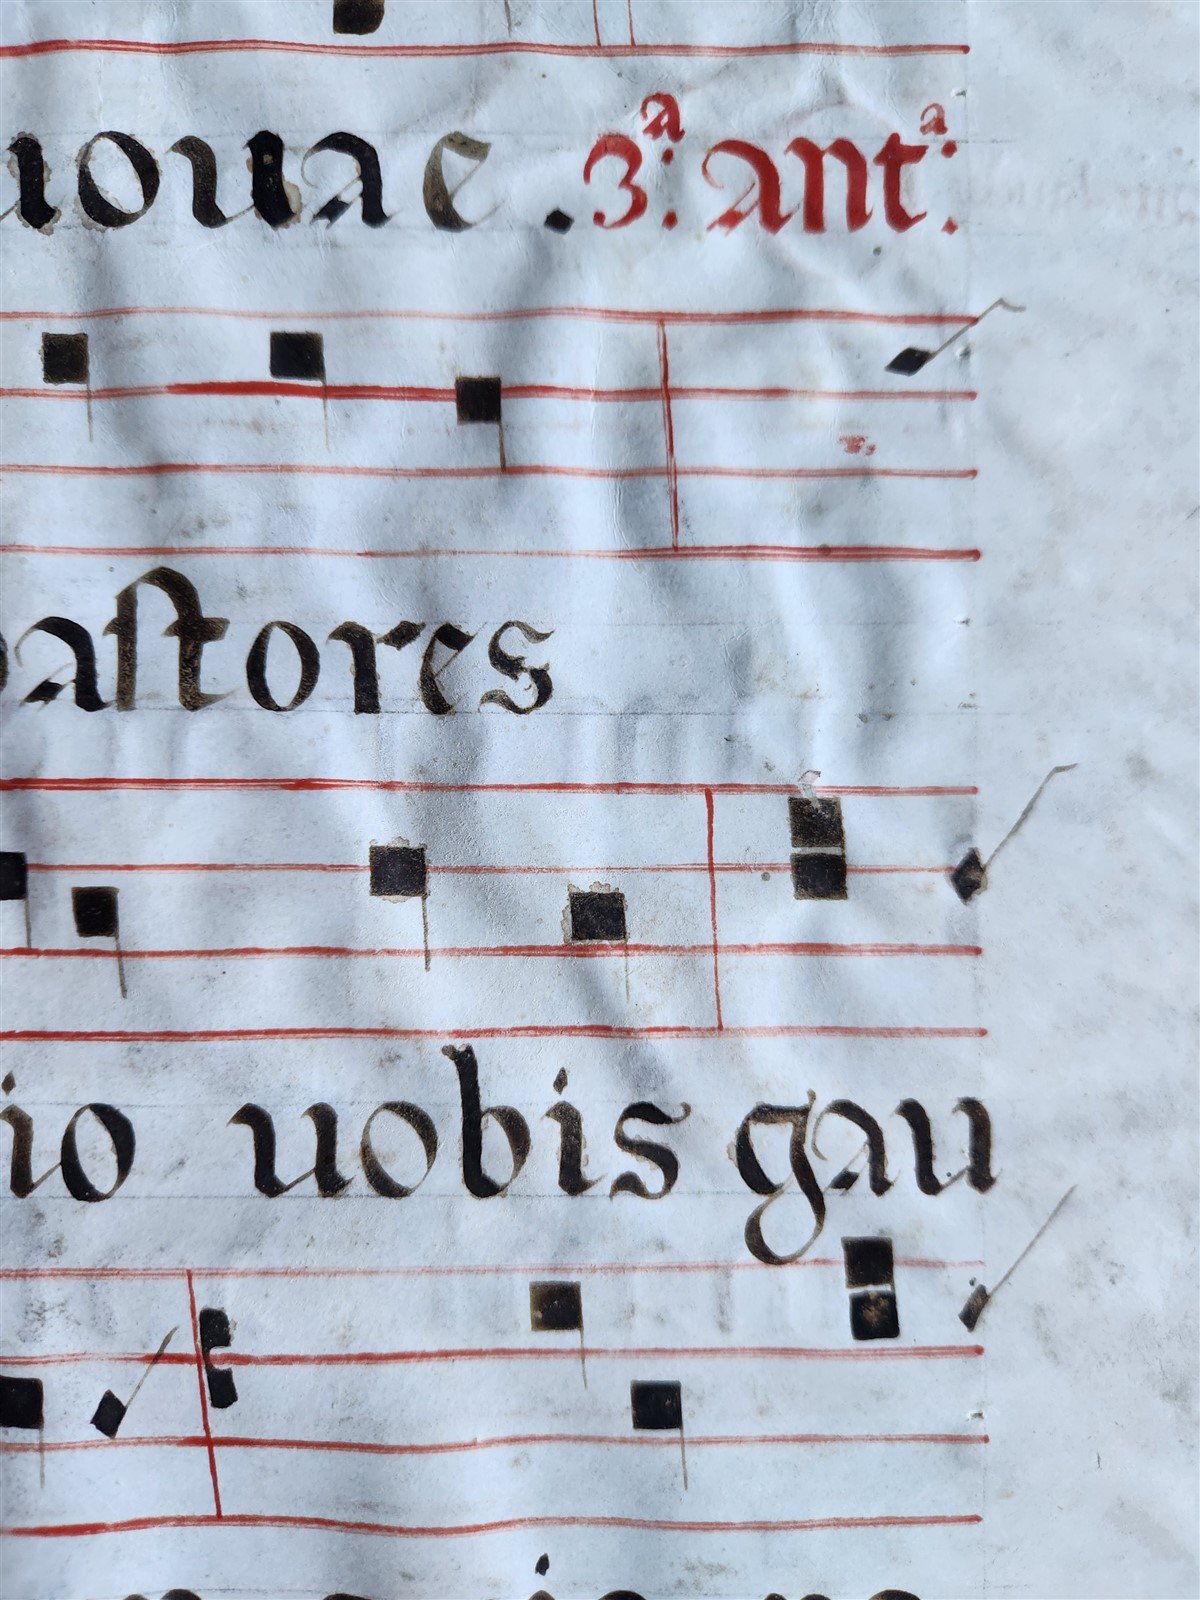 uouae . 3.ª antª:
paſtores
io uobis gau